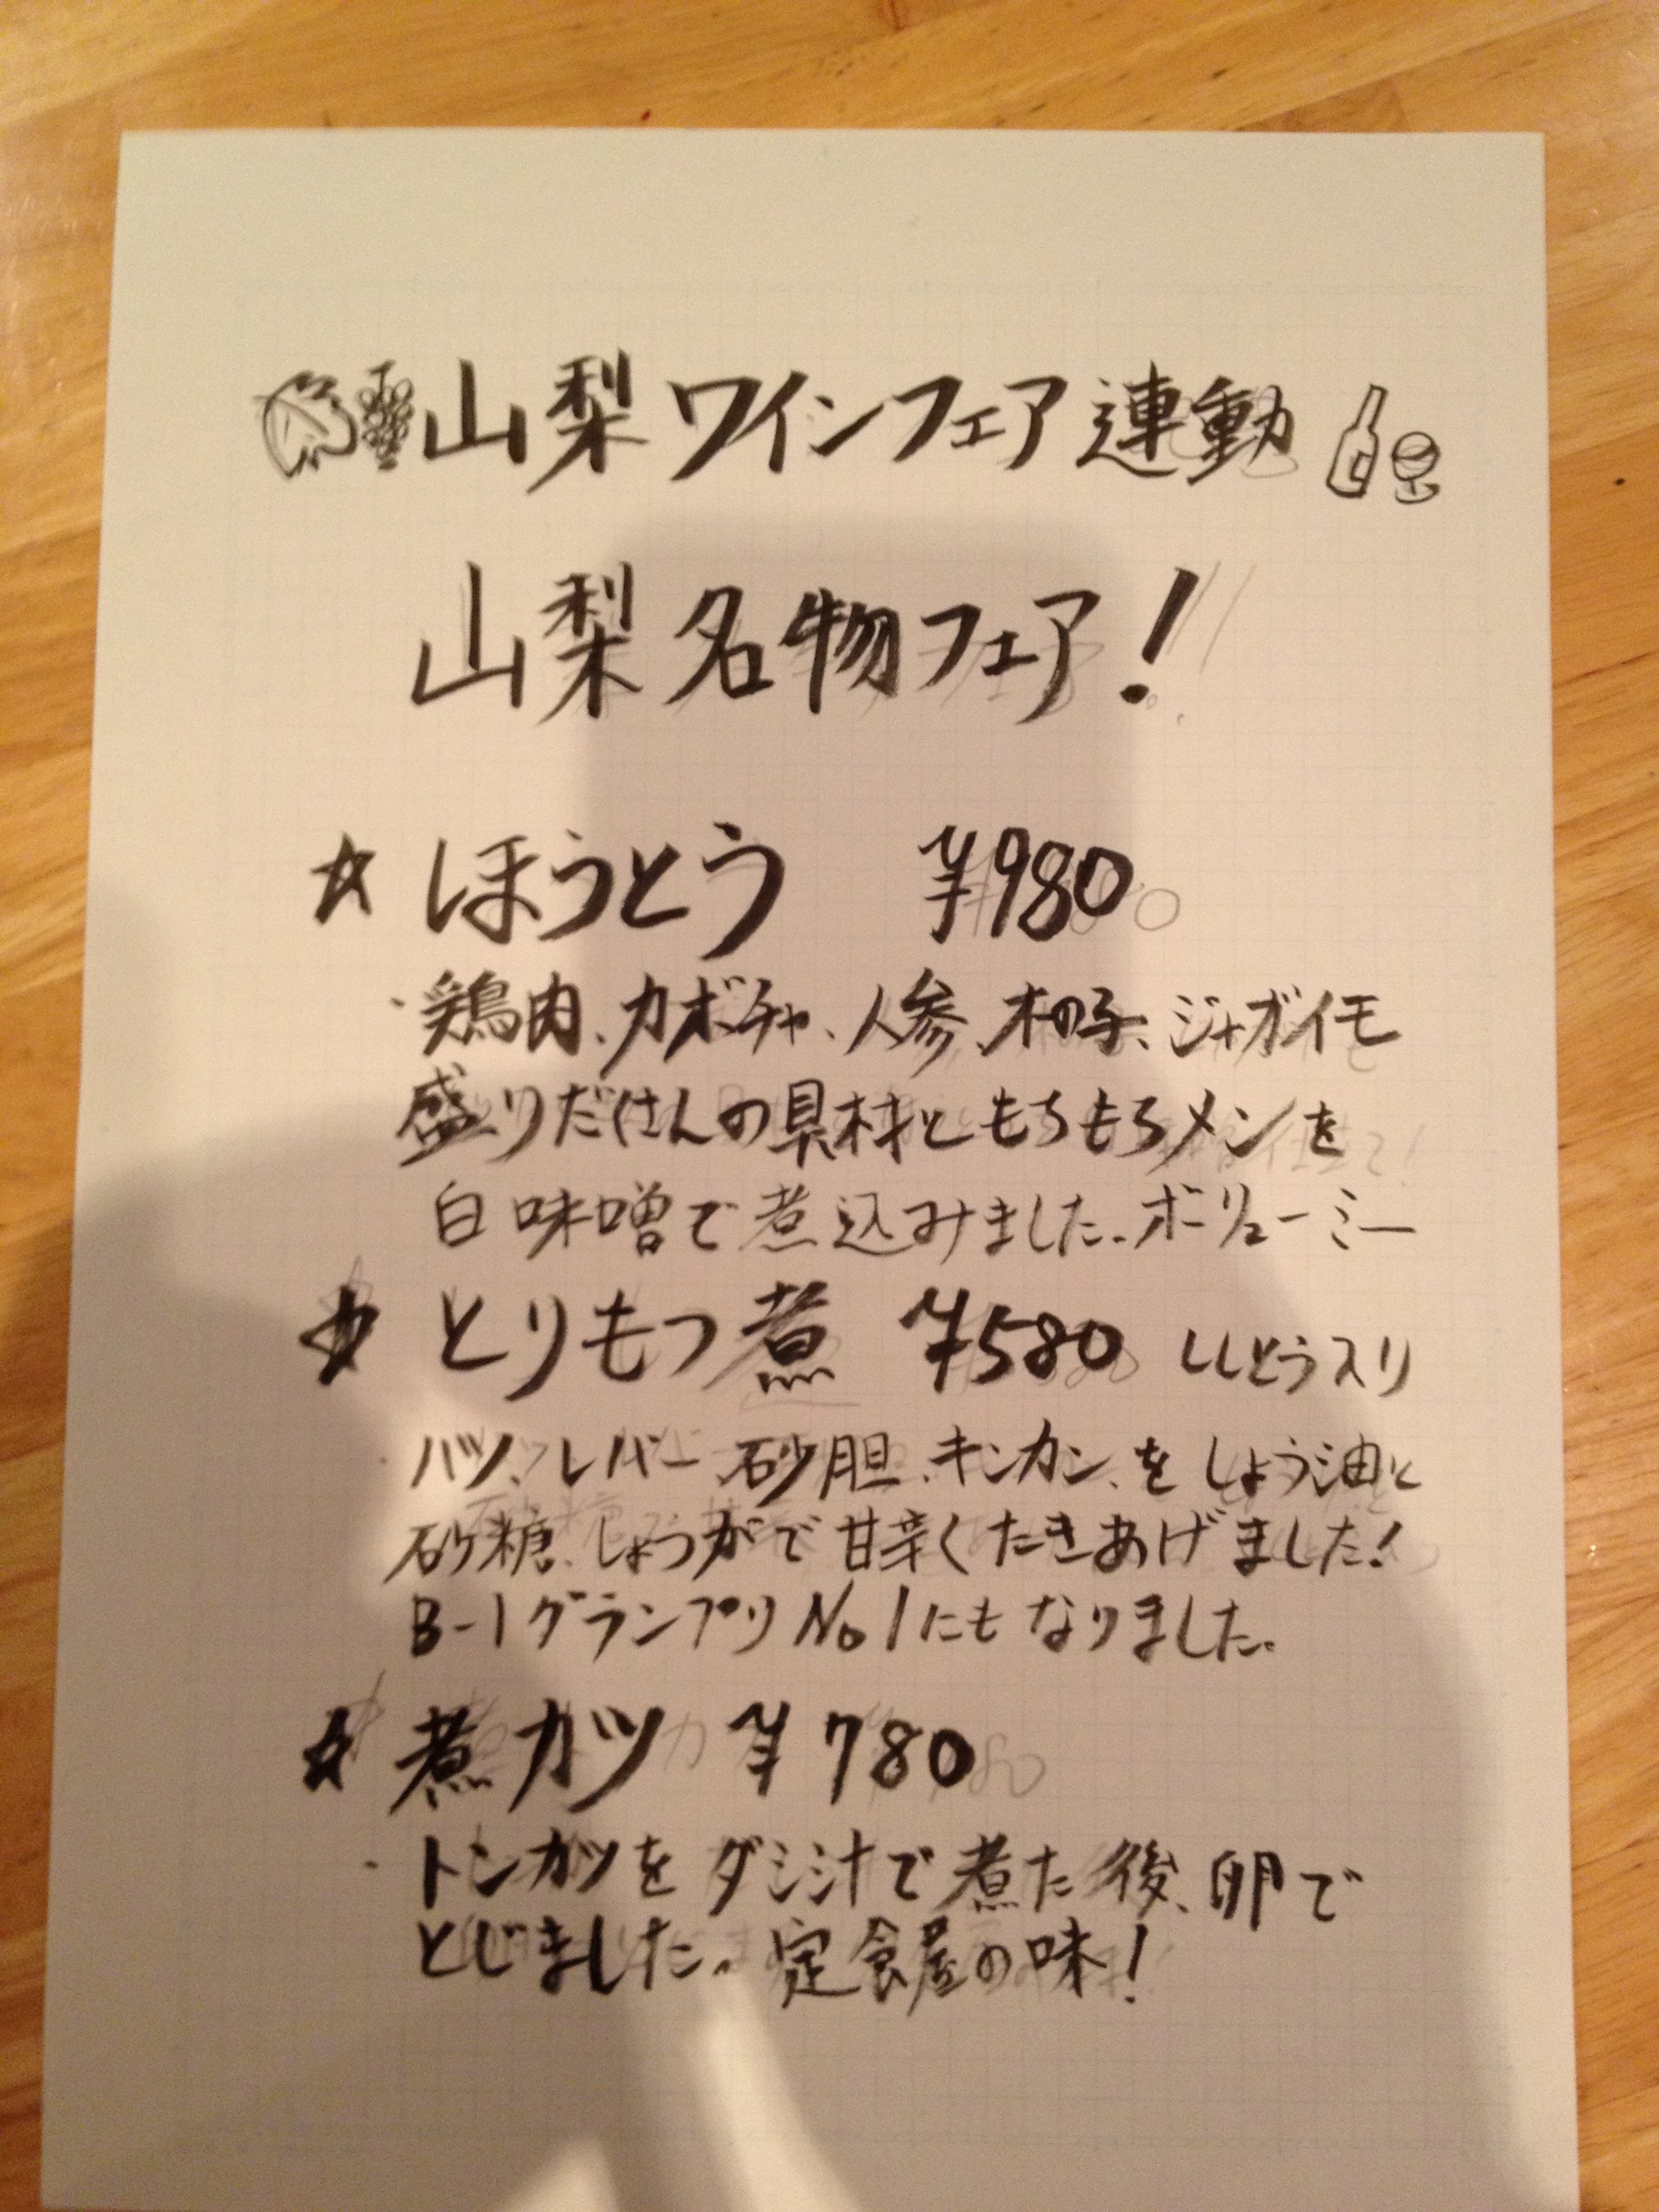 山梨ワインフェア連動
山梨名物フェア!
☆ ほうとう ¥980
・鶏肉、カボチャ、人参、木の子、ジャガイモ
盛りだくさんの具材ともちもちメンを
白味噌で煮込みました。ボーリューミー
☆ とりもつ煮 ¥580 ししとう入り
・ハツ、レバー、砂胆、キンカン、をしょう油と
砂糖、しょうがで甘辛くたきあげました!
B-1グランプリNo1にもなりました。
☆ 煮カツ ¥780
・トンカツをダシ汁で煮た後、卵で
とじました。定食屋の味!